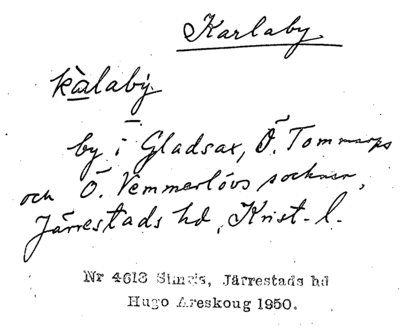 Karlaby
kàlabẏ
by i Gladsax, Ö. Tommarps
och Ö. Vemmerlövs socknar,
Järrestads hd, Krist. l.
Nr 4613 Simris, Järrestads hd
Hugo Areskoug 1950.